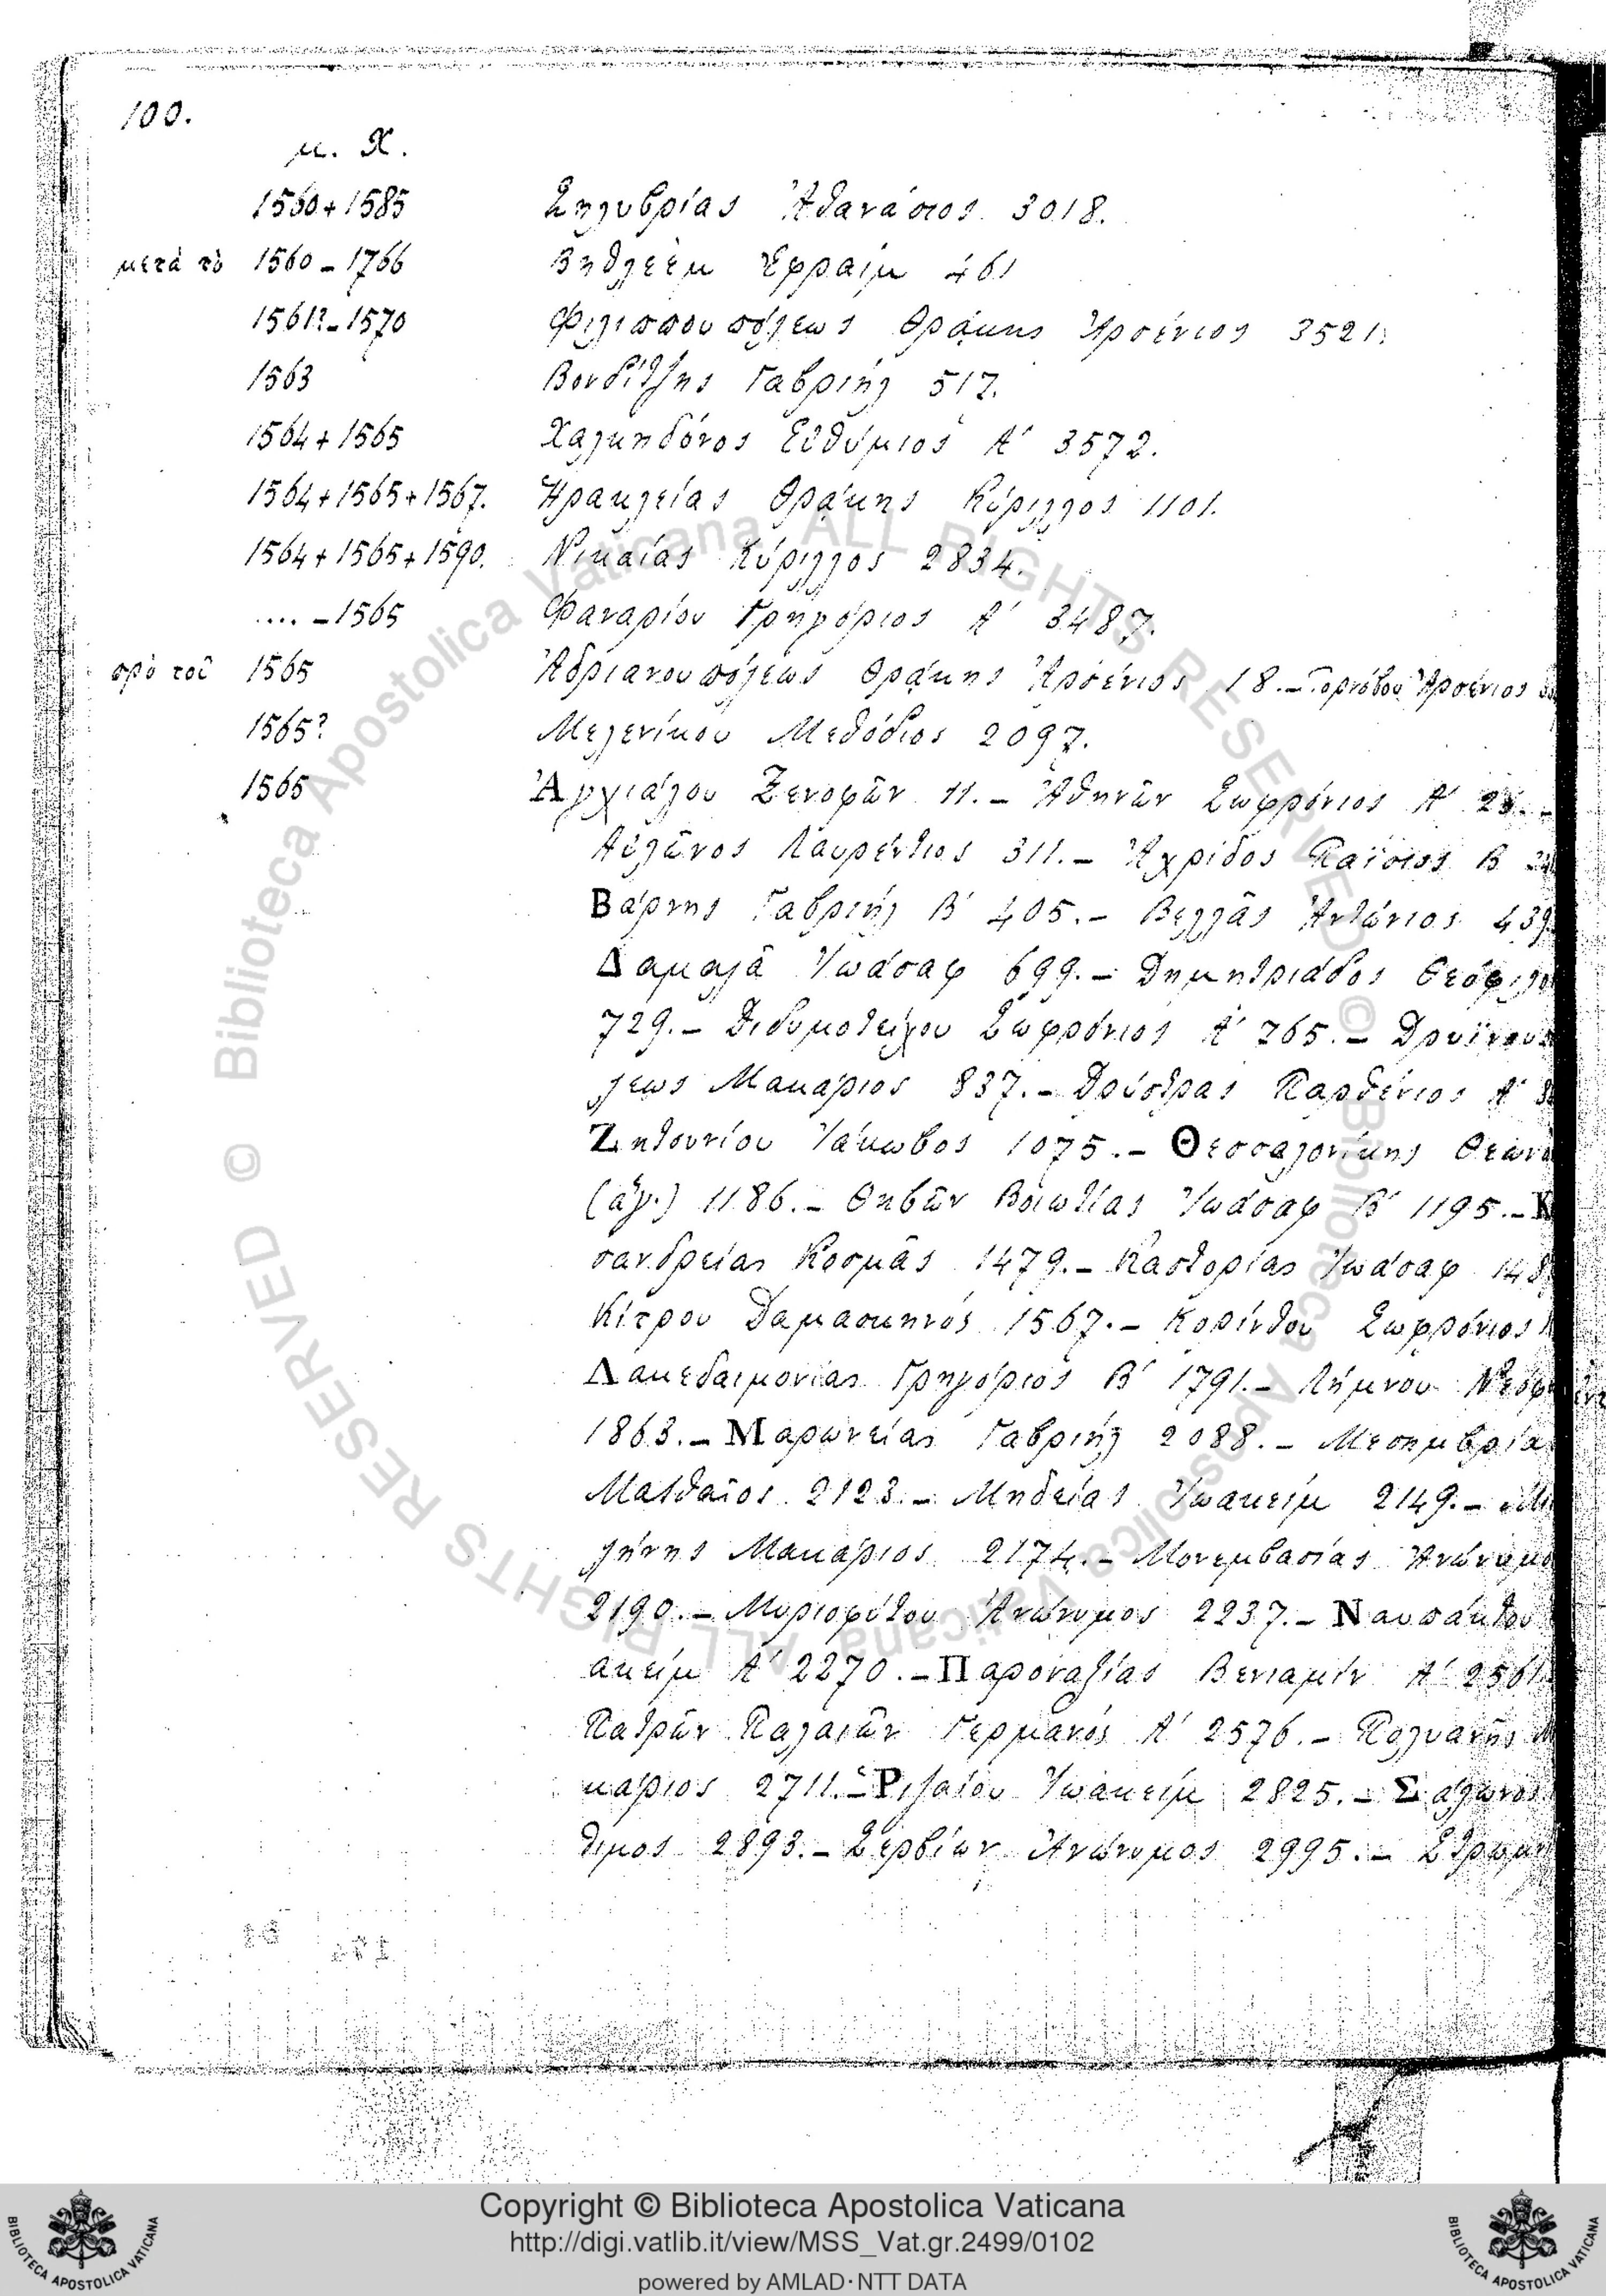 100.
μ. Χ.
1560+1585 Σηλυβρίας Ἀθανάσιος 3018.
μετὰ τὸ 1560-1766 Βηθλεὲμ Ἐφραὶμ 461
1561?-1570 Φιλιππουπόλεως Θρᾴκης Ἀρσένιος 3521.
1563 Βονδίτζης Γαβριὴλ 517.
1564+1565 Χαλκηδόνος Εὐθύμιος Α' 3572.
1564+1565+1567. Ἡρακλείας Θρᾴκης Κύριλλος 1101.
1564+1565+1590. Νικαίας Κύριλλος 2834.
....-1565 Φαναρίου Γρηγόριος Α' 3487.
πρὸ τοῦ 1565 Ἀδριανουπόλεως Θρᾴκης Ἀρσένιος 18.- Τορνόβου Ἀρσένιος
1565? Μελενίκου Μεθόδιος 2097.
1565 Ἀγχιάλου Ξενοφῶν 11.- Ἀθηνῶν Σωφρόνιος Α'
Αὐλῶνος Λαυρέντιος 311.- Ἀχρίδος Παΐσιος Β
Βάρνης Γαβριὴλ Β' 405.- Βελλᾶς Ἀντώνιος 439
Δαμαλᾶ Ἰωάσαφ 699.- Δημητριάδος Θεόφιλο
729.- Διδυμοτείχου Σωφρόνιος Α' 765.- Δρυϊνου
λεως Μακάριος 837.- Δρύστρας Παρθένιος Α'
Ζητουνίου Ἰάκωβος 1075.- Θεσσαλονίκης Θεωνᾶ
(ἅγ.) 1186.- Θηβῶν Βοιωτίας Ἰωάσαφ Β' 1195.- Κ
σανδρείας Κοσμᾶς 1479.- Καστορίας Ἰωάσαφ 148
Κίτρου Δαμασκηνός 1567.- Κορίνθου Σωφρόνιος
Λακεδαιμονίας Γρηγόριος Β' 1791.- Λήμνου Νεόφ
1863.- Μαρωνείας Γαβριὴλ 2088.- Μεσημβρία
Ματθαῖος 2123.- Μηδείας Ἰωακεὶμ 2149.- Μι
λήνης Μακάριος 2174.- Μονεμβασίας Ἀνώνυμο
2190.- Μυριοφύτου Ἀνώνυμος 2237.- Ναυπάκτου
ακεὶμ Α' 2270.- Παροναξίας Βενιαμὶν Α' 2561
Πατρῶν Παλαιῶν Γερμανός Α' 2576.- Πολυανῆς
κάριος 2711.- Ῥιζαίου Ἰωακεὶμ 2825.- Σάλωνος
θιμος 2893.- Σερβίων Ἀνώνυμος 2995.- Στρωμν
© Biblioteca Apostolica Vaticana ALL RIGHTS RESERVED © Biblioteca Apostolica Vaticana ALL RIGHTS RESERVED
Copyright © Biblioteca Apostolica Vaticana
http://digi.vatlib.it/view/MSS_Vat.gr.2499/0102
powered by AMLAD·NTT DATA
BIBLIOTECA APOSTOLICA VATICANA
BIBLIOTECA APOSTOLICA VATICANA